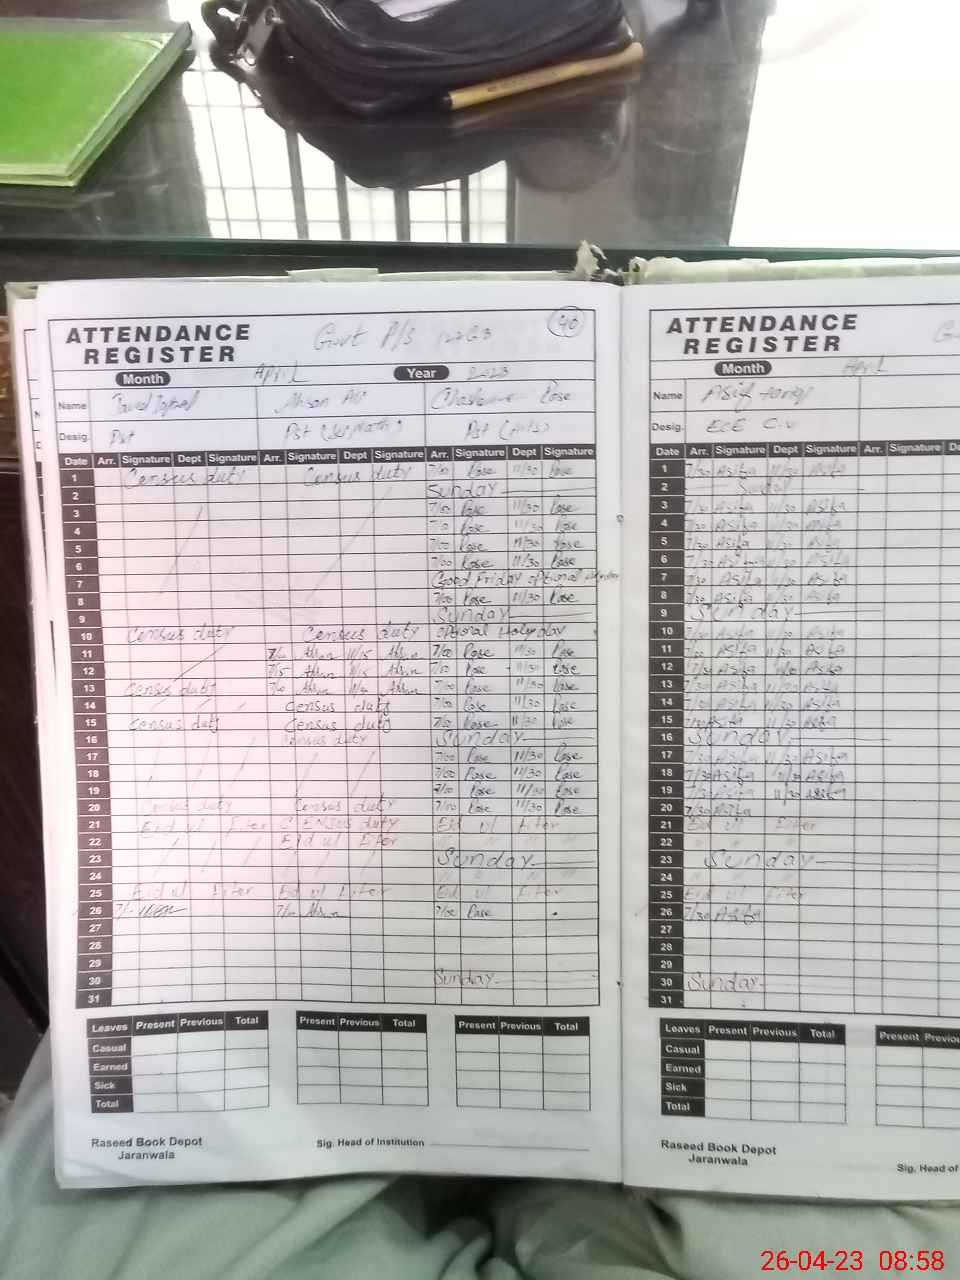 ATTENDANCE
REGISTER
Govt P/S
40
Month April Year 2023
Name Ahsan
Desig. Pst Pst (Sci Math) Pst (Arts)
Date Arr. Signature Dept Signature Arr. Signature Dept Signature Arr. Signature Dept Signature
1 Census duty Census duty 7/00 Rose 11/30 Rose
2 Sunday
3 7/00 Rose 11/30 Rose
4 7/00 Rose 11/30 Rose
5 7/00 Rose 11/30 Rose
6 7/00 Rose 11/30 Rose
7 Good Friday optional
8 7/00 Rose 11/30 Rose
9 Sunday
10 Census duty Census duty optional Holyday
11 Ahsan 11/15 Ahsan 7/00 Rose 11/30 Rose
12 7/15 Ahsan 11/15 Ahsan 7/00 Rose 11/30 Rose
13 Census duty Ahsan Ahsan 7/00 Rose 11/30 Rose
14 Census duty 7/00 Rose 11/30 Rose
15 Census duty Census duty 7/00 Rose 11/30 Rose
16 Census duty Sunday
17 7/00 Rose 11/30 Rose
18 7/00 Rose 11/30 Rose
19 7/00 Rose 11/30 Rose
20 Census duty Census duty 7/00 Rose 11/30 Rose
21 Eid ul Fiter CENSUS duty Eid ul Fiter
22 Eid ul Fiter " " "
23 Sunday
24 " " "
25 Eid ul Fiter Eid ul Fiter Eid ul Fiter
26 Ahsan 7/00 Rose
27
28
29
30 Sunday
31
Leaves Present Previous Total Present Previous Total Present Previous Total
Casual
Earned
Sick
Total
Raseed Book Depot
Jaranwala
Sig. Head of Institution
ATTENDANCE
REGISTER
Month April
Name Asif
Desig. ECE
Date Arr. Signature Dept Signature Arr. Signature Dept Signature
1 7/30 Asifa 11/30 Asifa
2 Sunday
3 7/30 Asifa 11/30 Asifa
4 7/30 Asifa 11/30 Asifa
5 7/30 Asifa 11/30 Asifa
6 7/30 Asifa 11/30 Asifa
7 7/30 Asifa 11/30 Asifa
8 7/30 Asifa 11/30 Asifa
9 Sunday
10 7/30 Asifa 11/30 Asifa
11 Asifa 11/30 Asifa
12 7/30 Asifa Asifa
13 7/30 Asifa 11/30 Asifa
14 7/30 Asifa 11/30 Asifa
15 7/30 Asifa 11/30 Asifa
16 Sunday
17 7/30 Asifa 11/30 Asifa
18 7/30 Asifa 11/30 Asifa
19 7/30 Asifa 11/30 Asifa
20 7/30 Asifa
21 Eid ul Fiter
22 " " "
23 Sunday
24 " " "
25 Eid ul Fiter
26 7/30 Asifa
27
28
29
30 Sunday
31
Leaves Present Previous Total Present
Casual
Earned
Sick
Total
Raseed Book Depot
Jaranwala
Sig. Head of
26-04-23 08:58